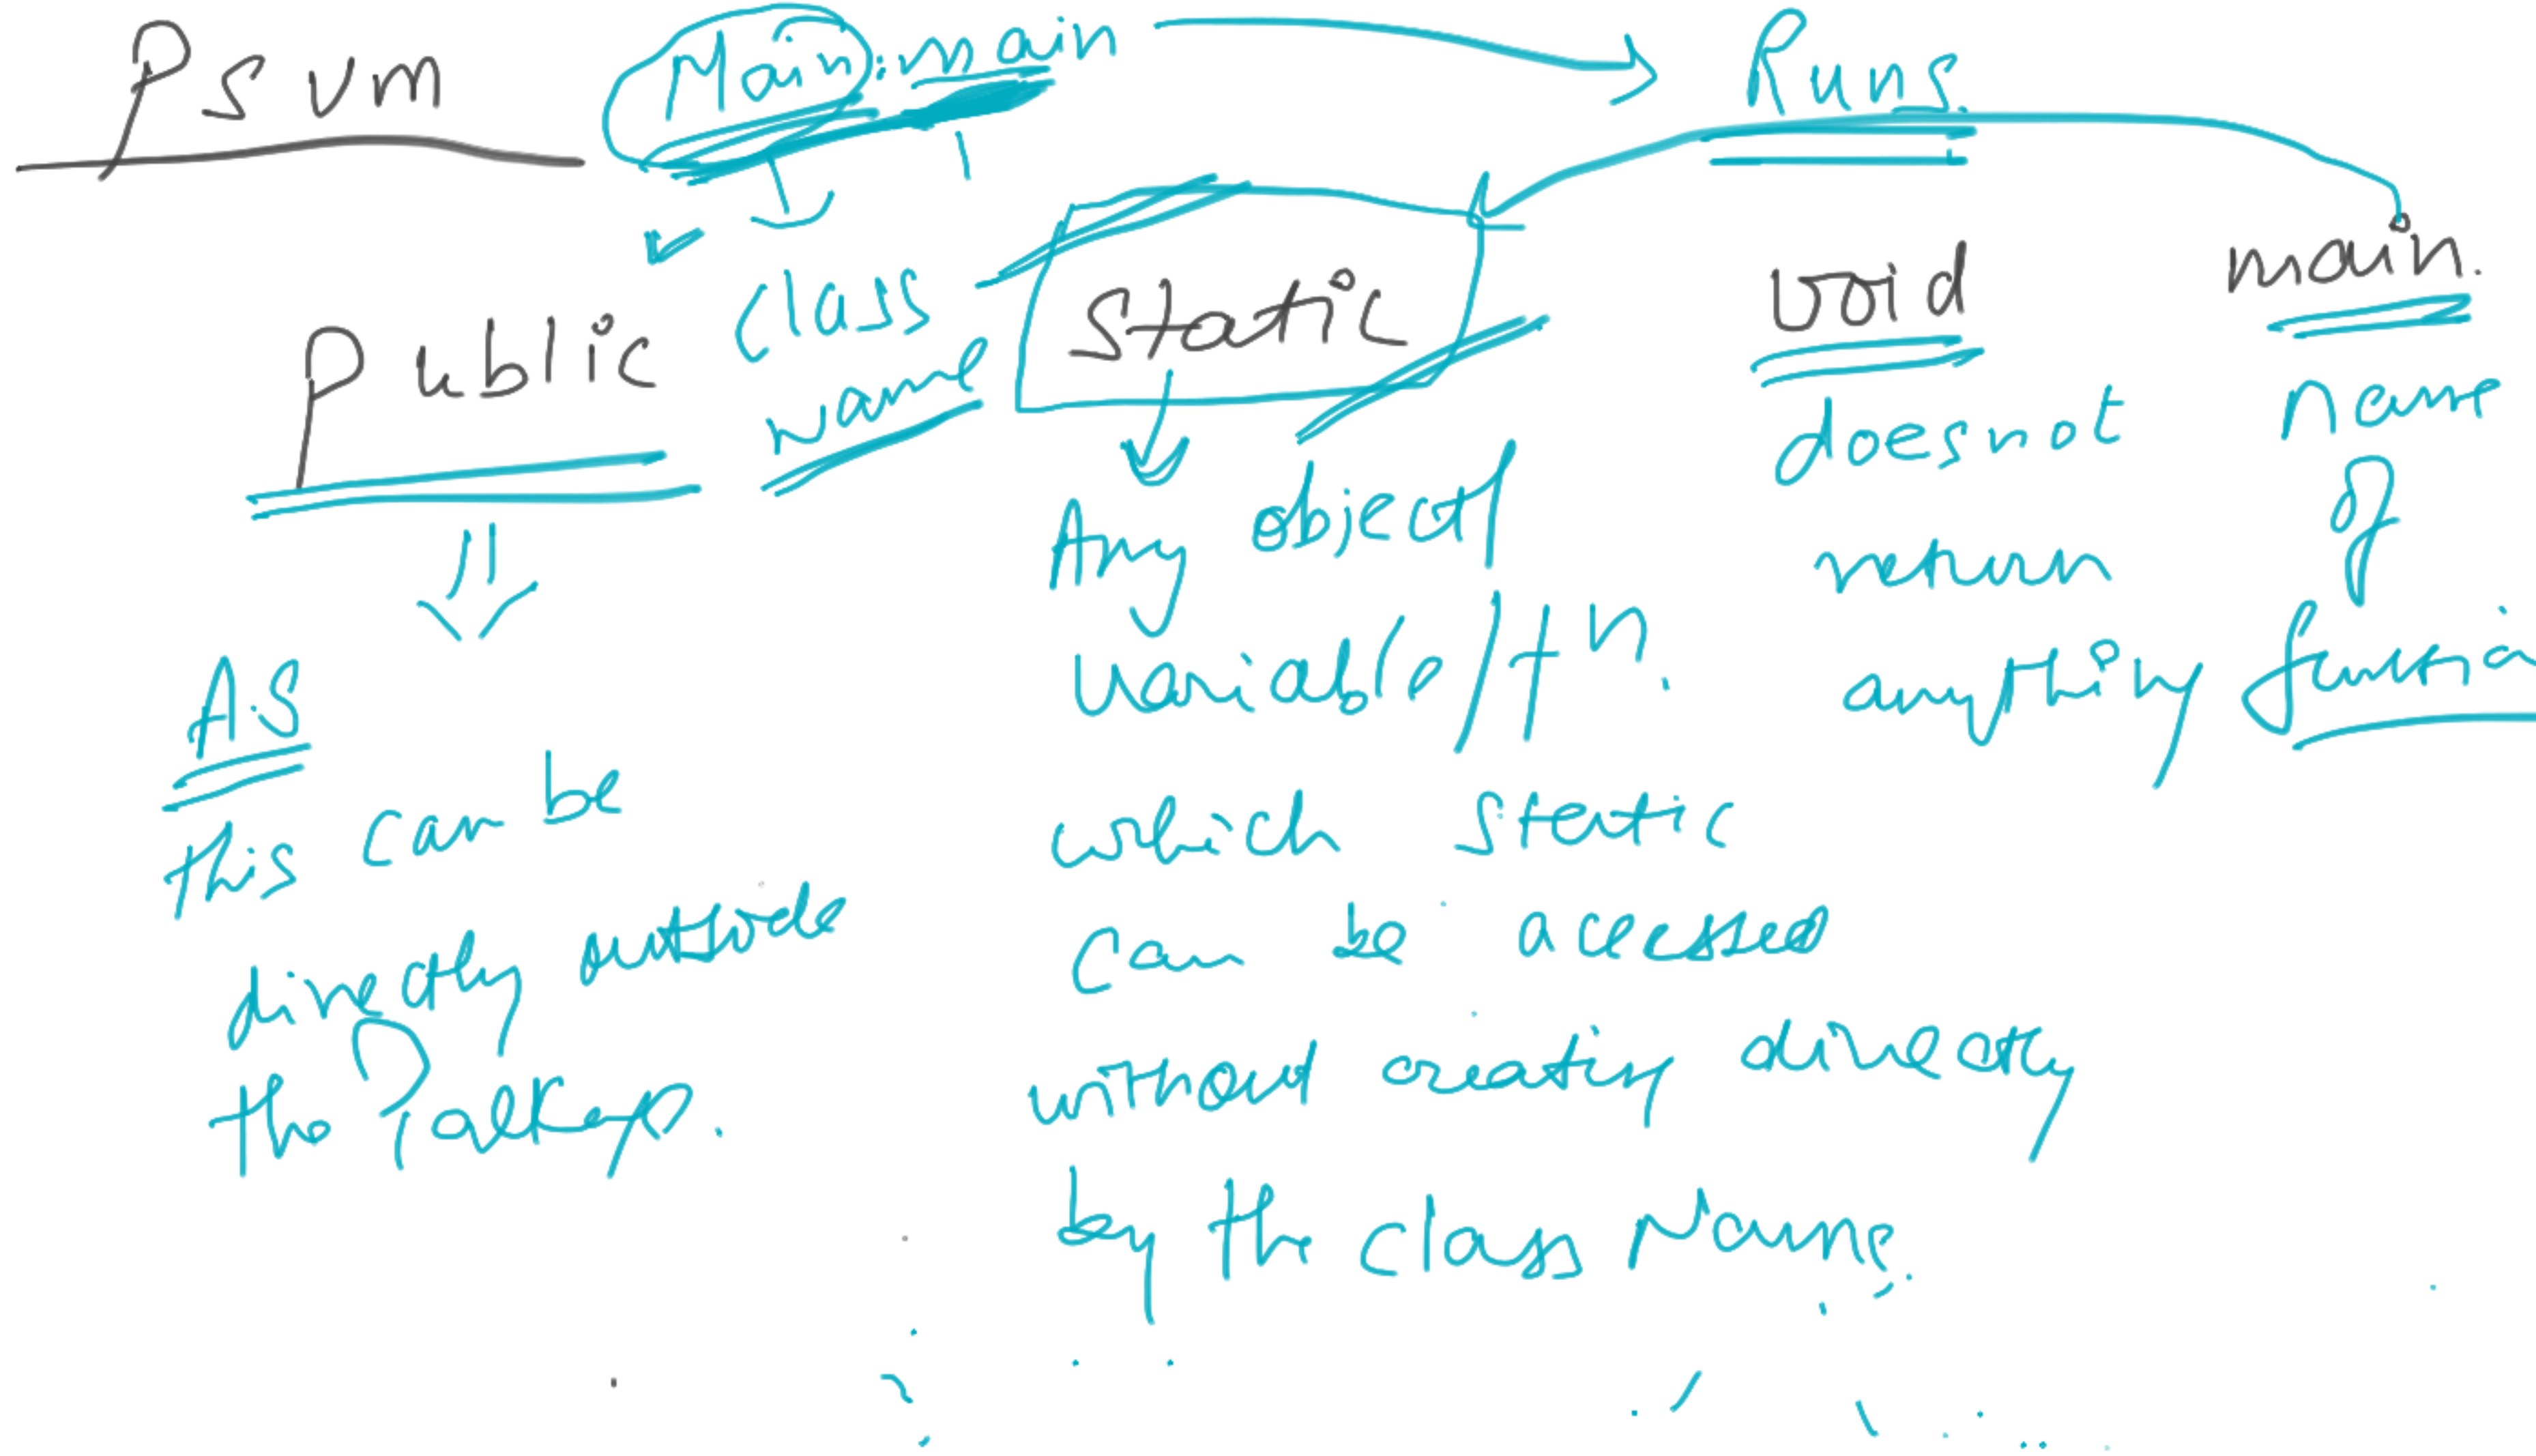 Psvm
Main.main
Runs.
class
Name
Public
Static
void
main.
AS
this can be
directly outside
the
Any object/
variable/fn.
which static
can be acessed
without creating directly
by the class Name.
doesnot
return
anything
name
of